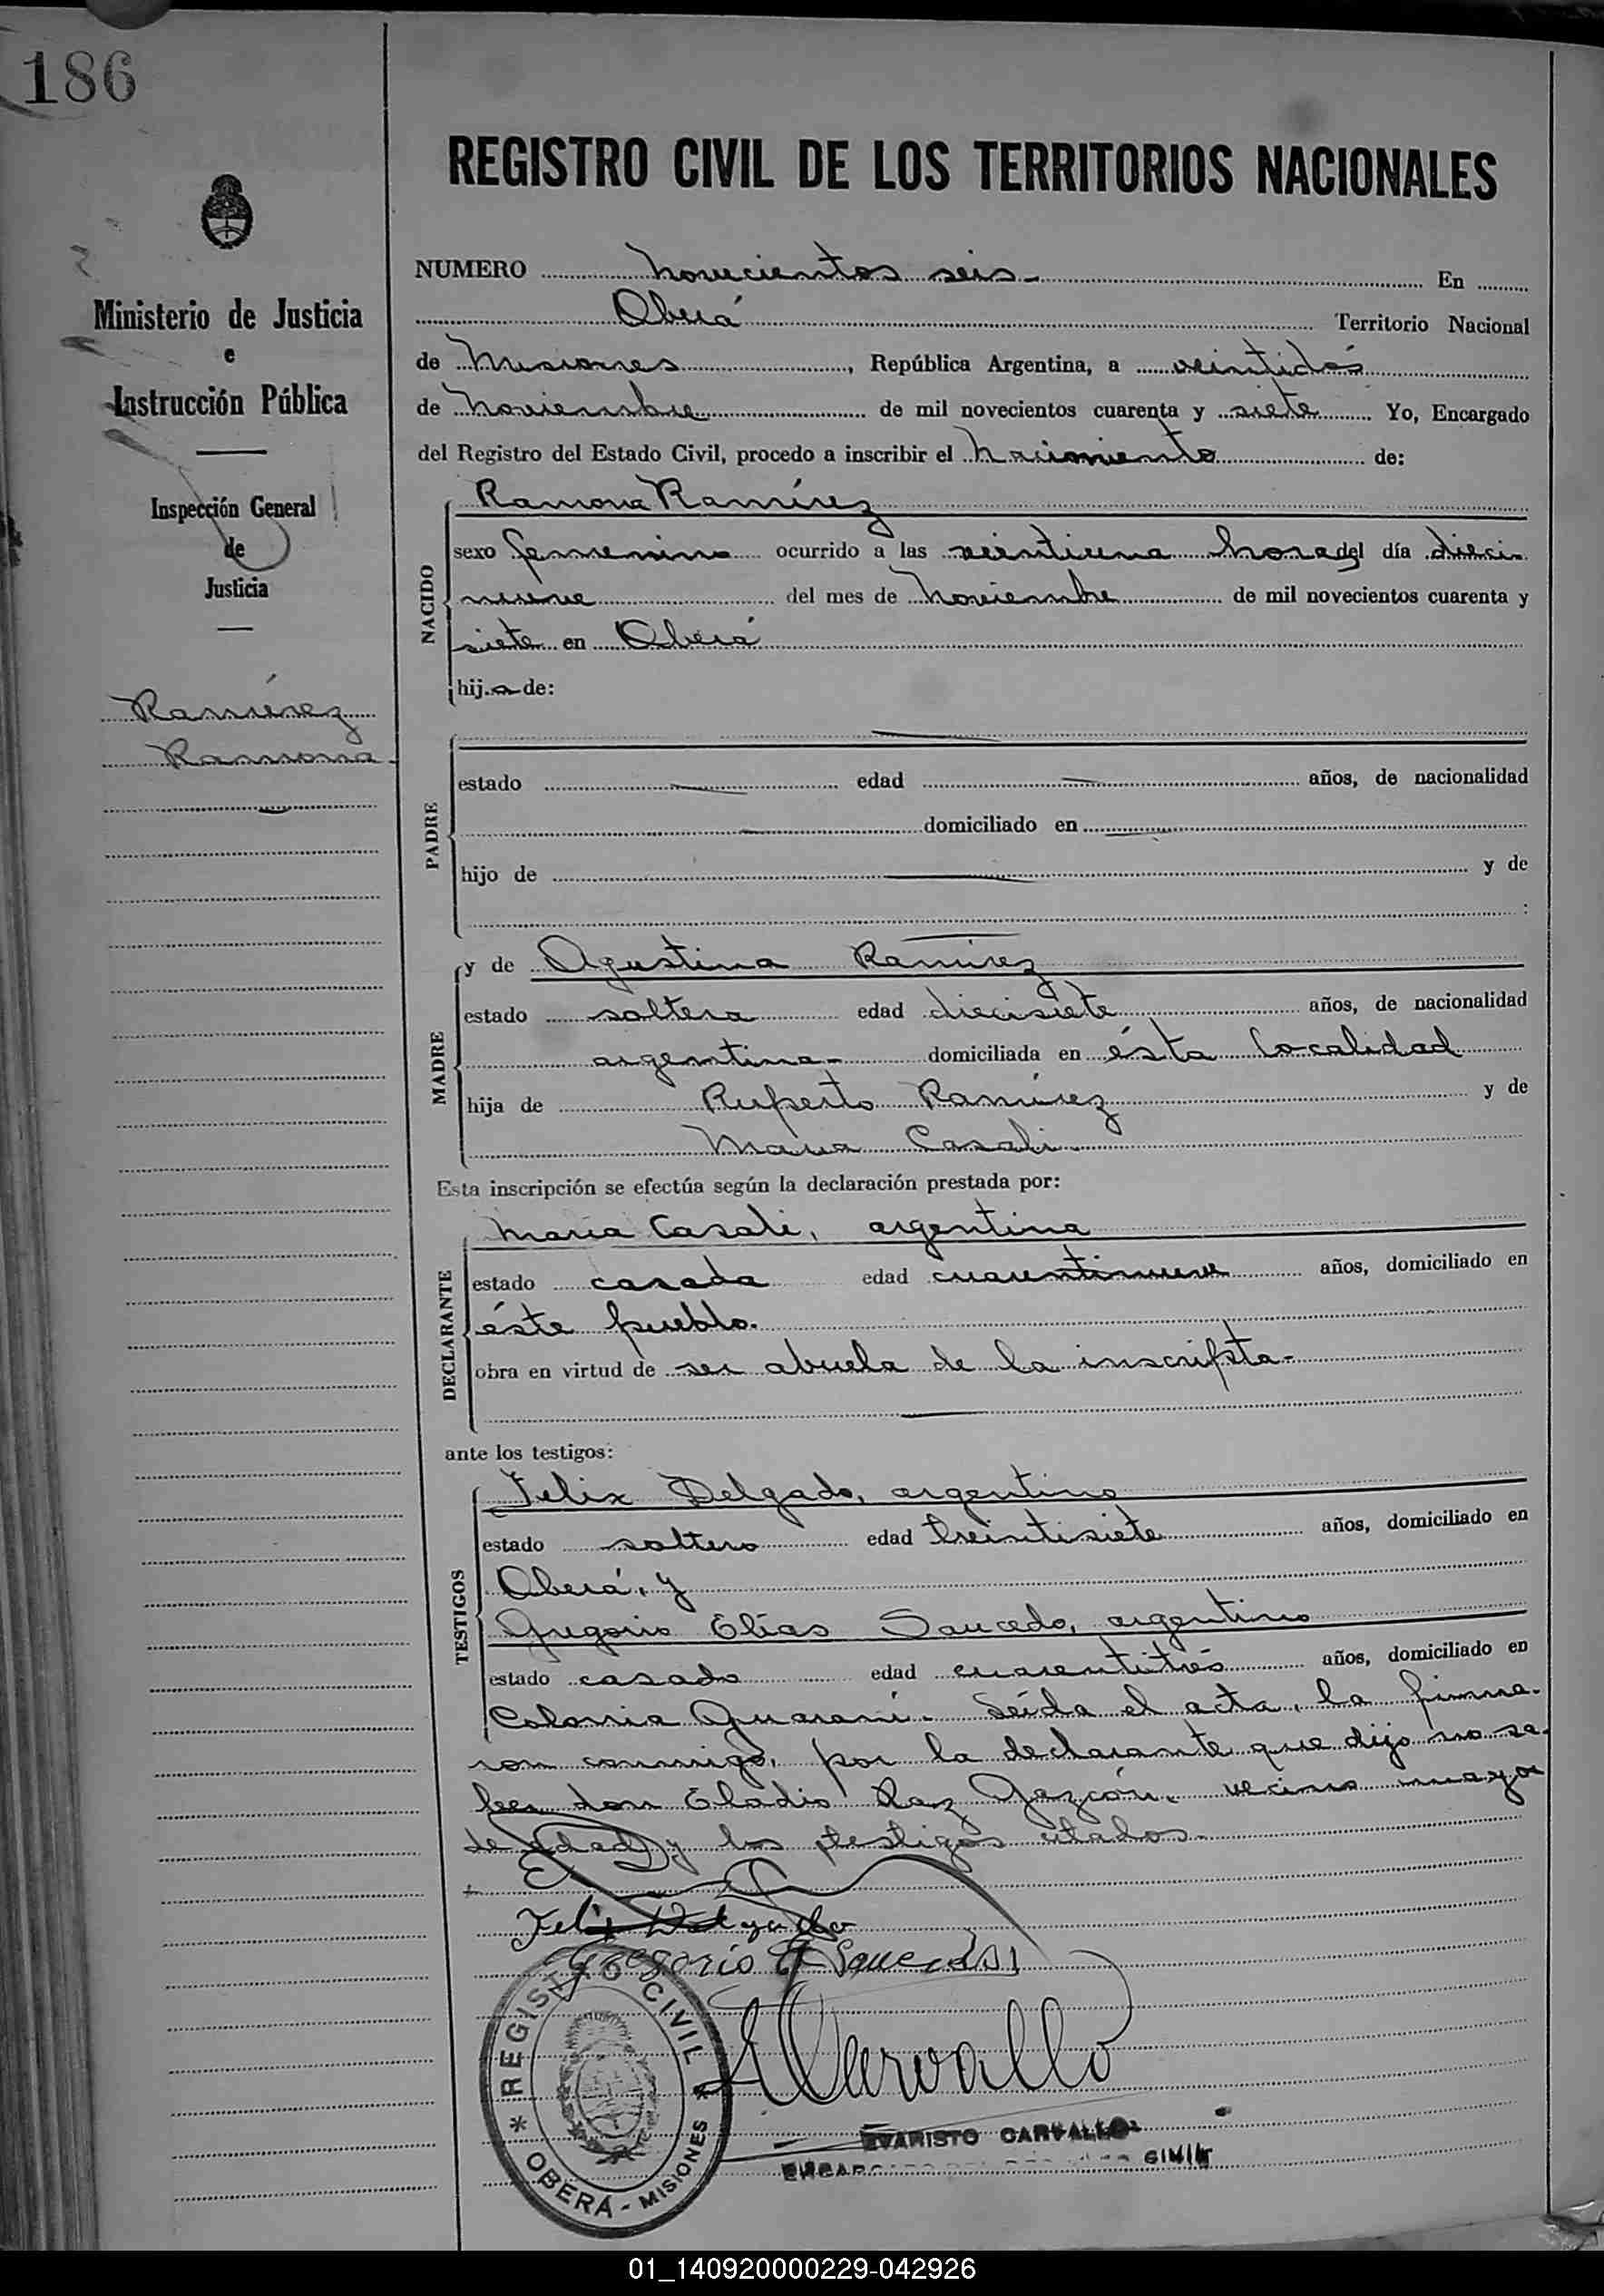 186
REGISTRO CIVIL DE LOS TERRITORIOS NACIONALES
Ministerio de Justicia
e
Instrucción Pública
Inspección General
de
Justicia
Ramírez
Ramona
NUMERO novecientos seis - En
Oberá Territorio Nacional
de Misiones, República Argentina, a veintidós
de noviembre de mil novecientos cuarenta y siete Yo, Encargado
del Registro del Estado Civil, procedo a inscribir el nacimiento de:
NACIDO
Ramona Ramírez
sexo femenino ocurrido a las veintiuna horas del día dieci
nueve del mes de noviembre de mil novecientos cuarenta y
siete en Oberá
hija de:
PADRE
estado edad años, de nacionalidad
domiciliado en
hijo de y de
:
MADRE
y de Agustina Ramírez
estado soltera edad diecisiete años, de nacionalidad
argentina - domiciliada en ésta localidad
hija de Ruperto Ramírez y de
María Casali
Esta inscripción se efectúa según la declaración prestada por:
DECLARANTE
María Casali, argentina
estado casada edad cuarentinueve años, domiciliado en
éste pueblo.
obra en virtud de ser abuela de la inscripta -
ante los testigos:
TESTIGOS
Felix Delgado, argentino
estado soltero edad treintisiete años, domiciliado en
Oberá, y
Gregorio Elías Saucedo, argentino
estado casado edad cuarentitrés años, domiciliado en
Colonia Guaraní. Leída el acta, la firma-
ron conmigo, por la declarante que dijo no sa-
ber don Eladio vecino mayor
de edad y los testigos citados.
Felix Delgado
Gregorio E Saucedo
ACarvallo
REGISTRO CIVIL
* OBERÁ - MISIONES *
EVARISTO CARVALLO
01_140920000229-042926